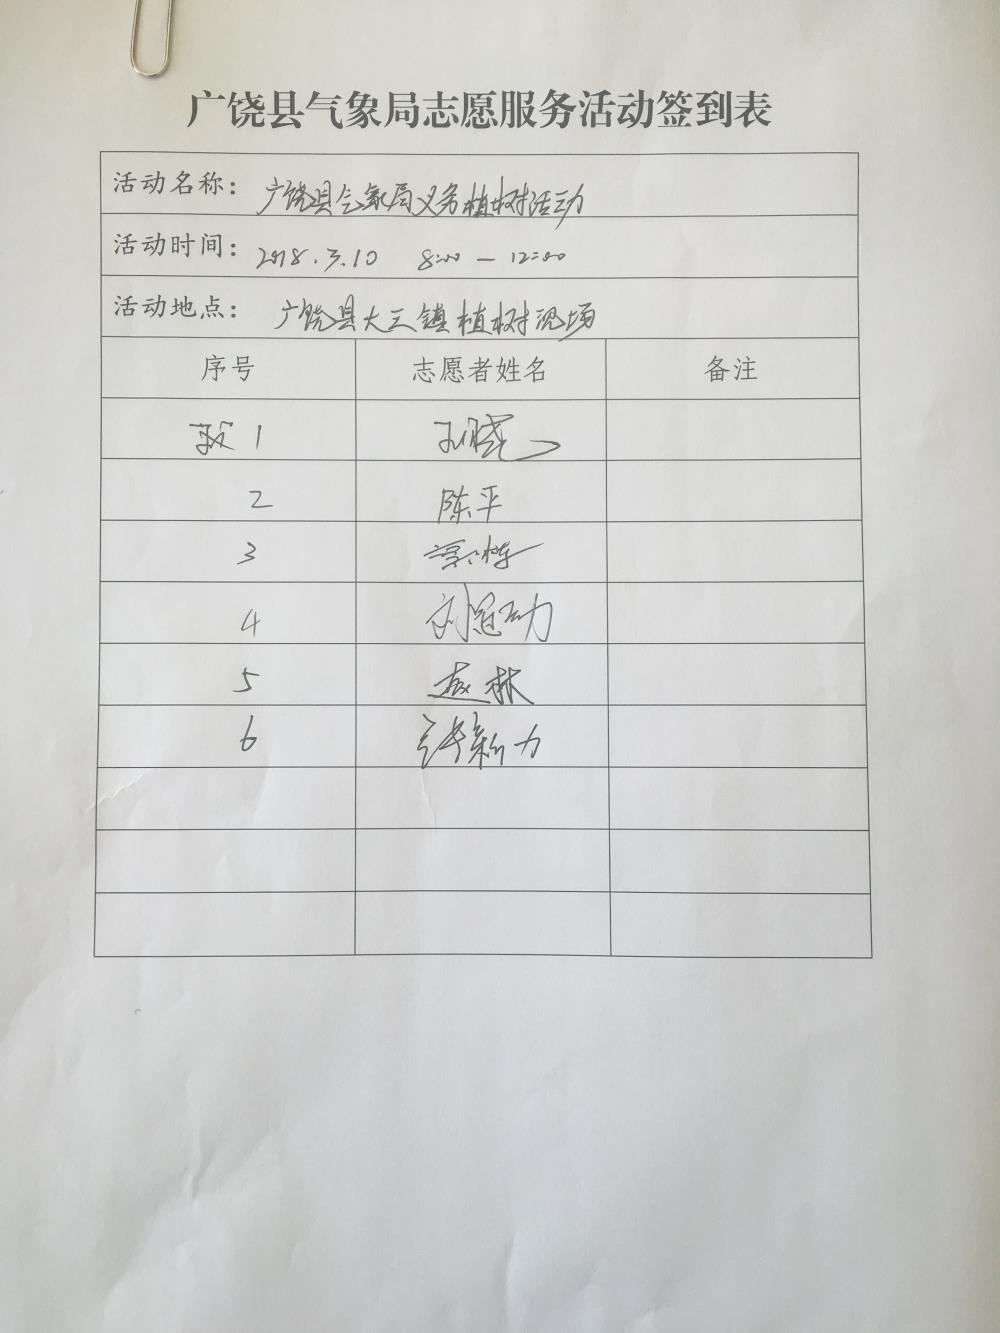 广饶县气象局志愿服务活动签到表
活动名称：广饶县气象局义务植树活动
活动时间：2018.3.10 8:00 — 12:00
活动地点：广饶县大王镇植树现场
序号 志愿者姓名 备注
1
2 陈平
3
4 刘冠力
5 赵林
6 许新力